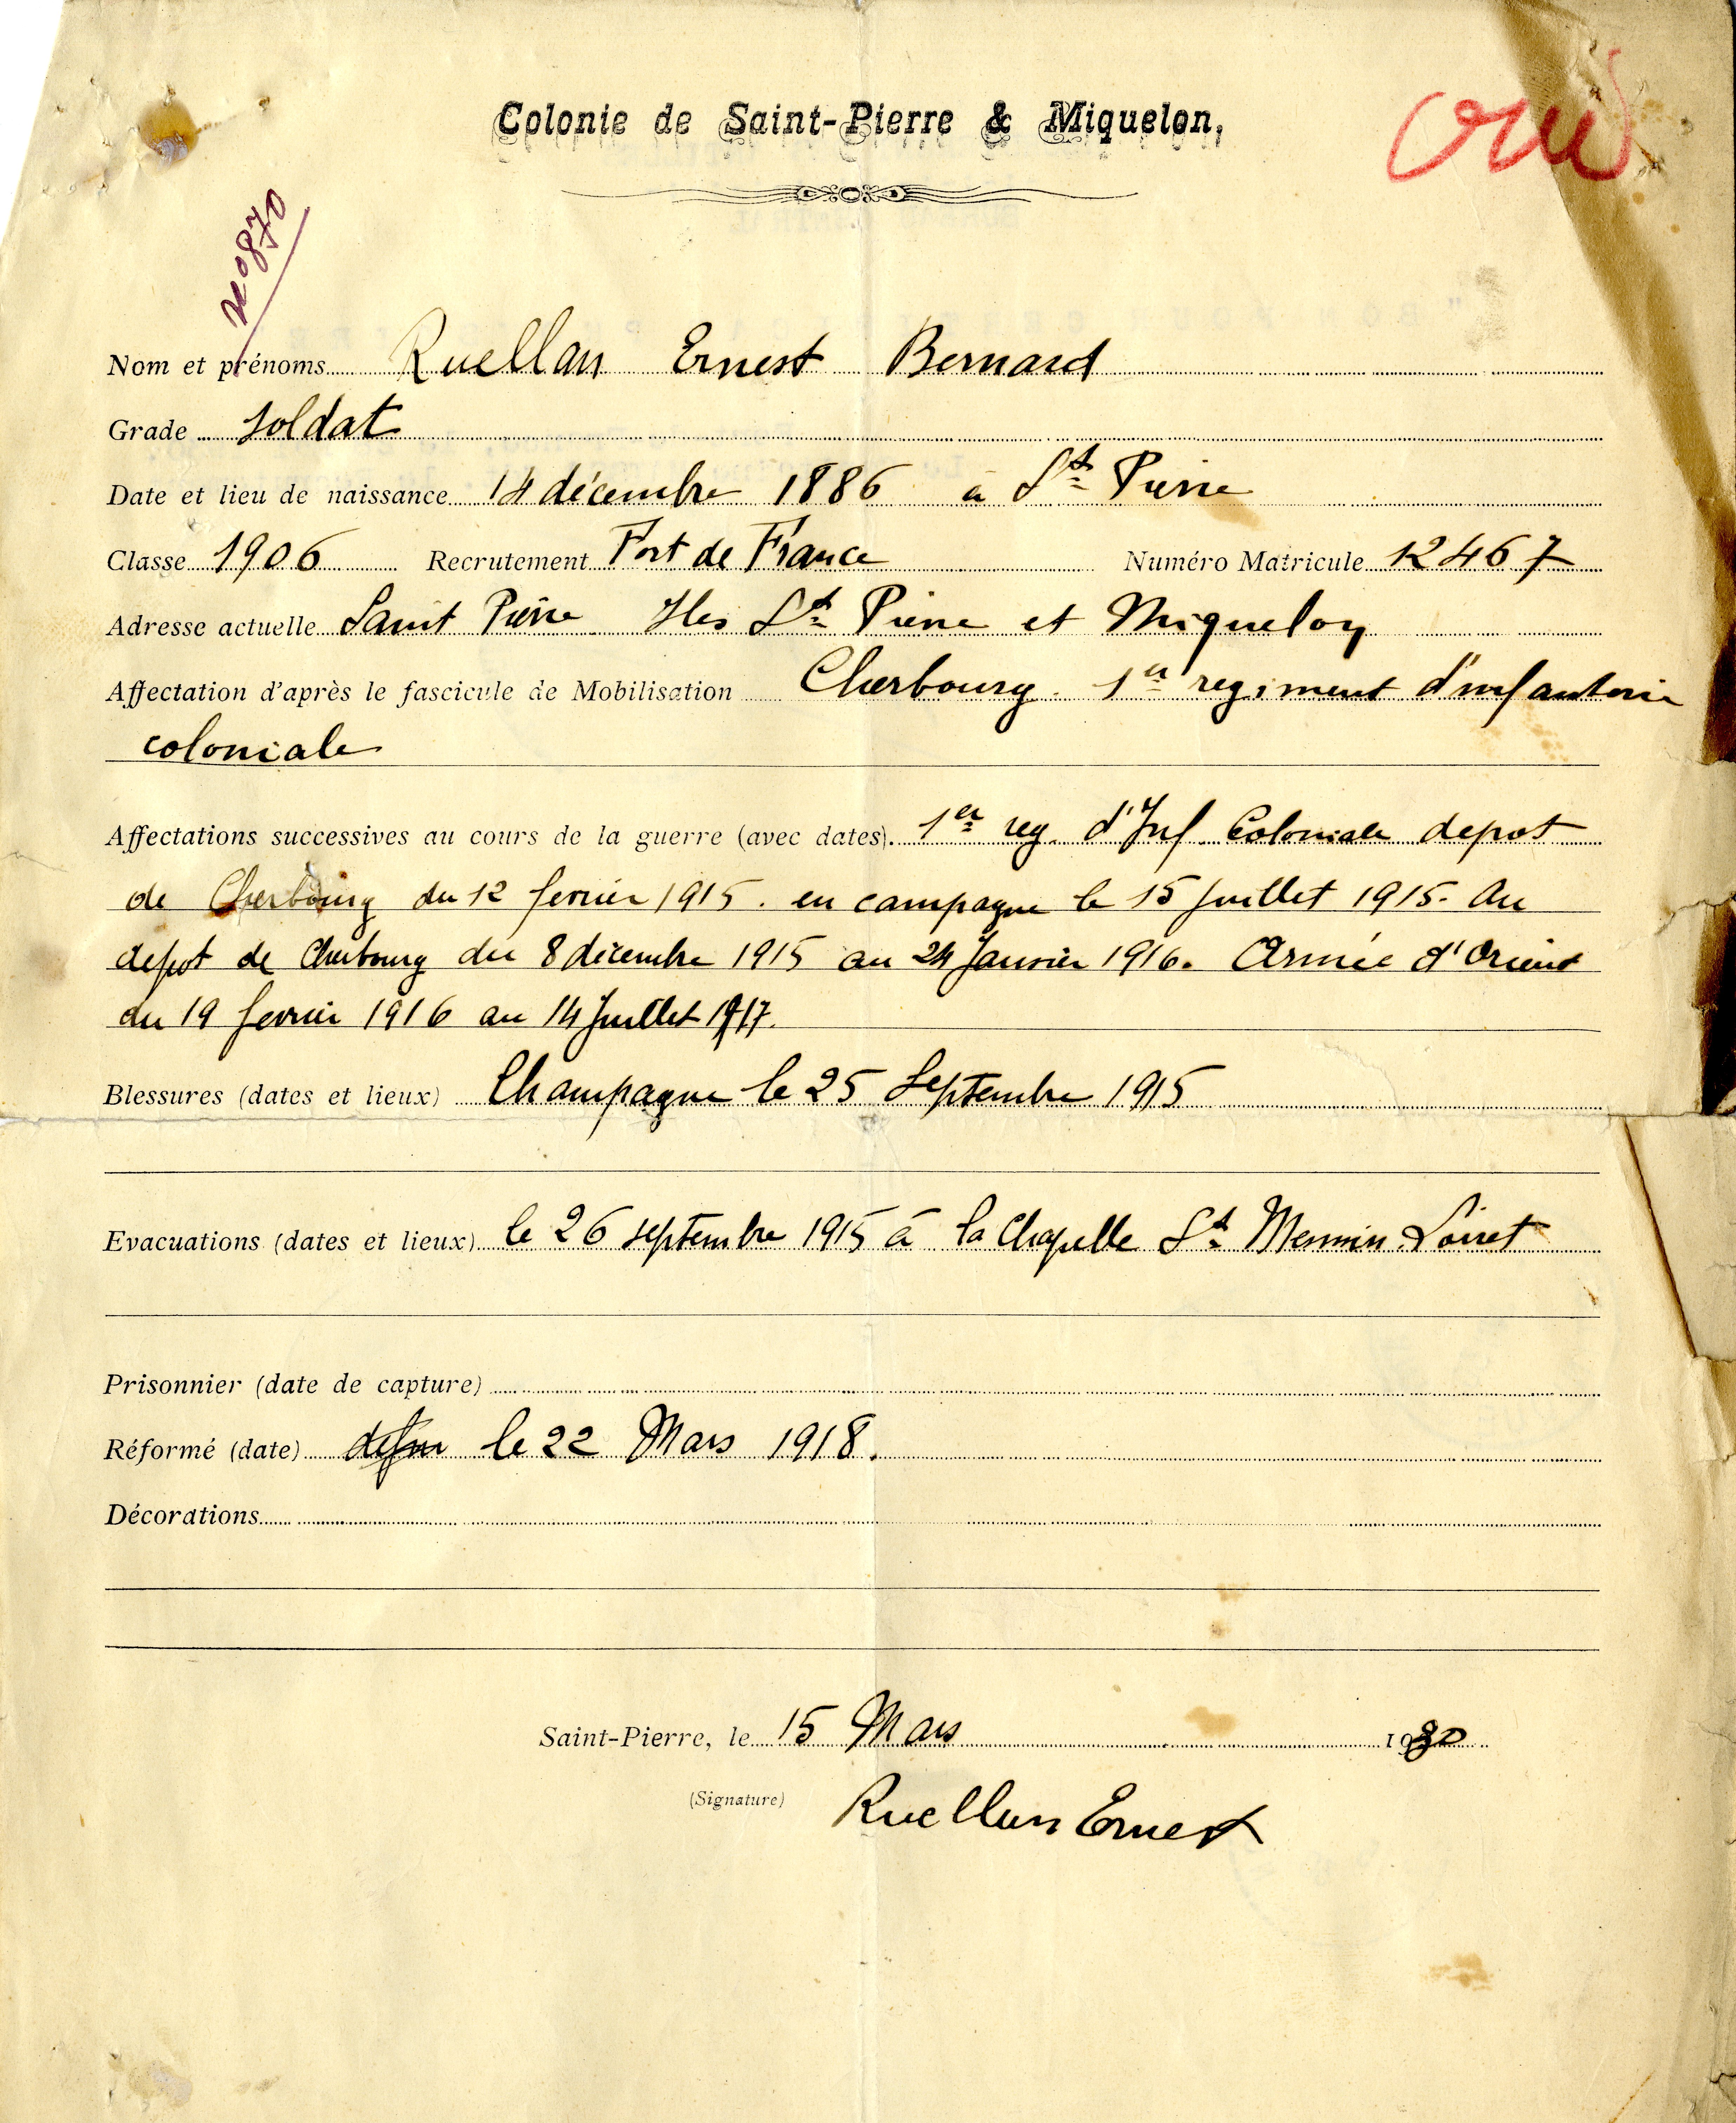 Colonie de Saint-Pierre & Miquelon,
oui
n° 870
Nom et prénoms Ruellan Ernest Bernard
Grade soldat
Date et lieu de naissance 14 décembre 1886 à St Pierre
Classe 1906 Recrutement Fort de France Numéro Matricule 12467
Adresse actuelle Saint Pierre Iles St Pierre et Miquelon
Affectation d'après le fascicule de Mobilisation Cherbourg. 1er regiment d'infanterie
coloniale
Affectations successives au cours de la guerre (avec dates). 1er reg. d'Inf Coloniale depot
de Cherbourg du 12 fevrier 1915. en campagne le 15 Juillet 1915. Au
depot de Cherbourg du 8 décembre 1915 au 24 Janvier 1916. Armée d'Orient
du 19 fevrier 1916 au 14 Juillet 1917.
Blessures (dates et lieux) Champagne le 25 Septembre 1915
Evacuations (dates et lieux) le 26 septembre 1915 à la Chapelle St Mesmin Loiret
Prisonnier (date de capture)
Réformé (date) le 22 Mars 1918.
Décorations
Saint-Pierre, le 15 Mars 1930
(Signature) Ruellan Ernest